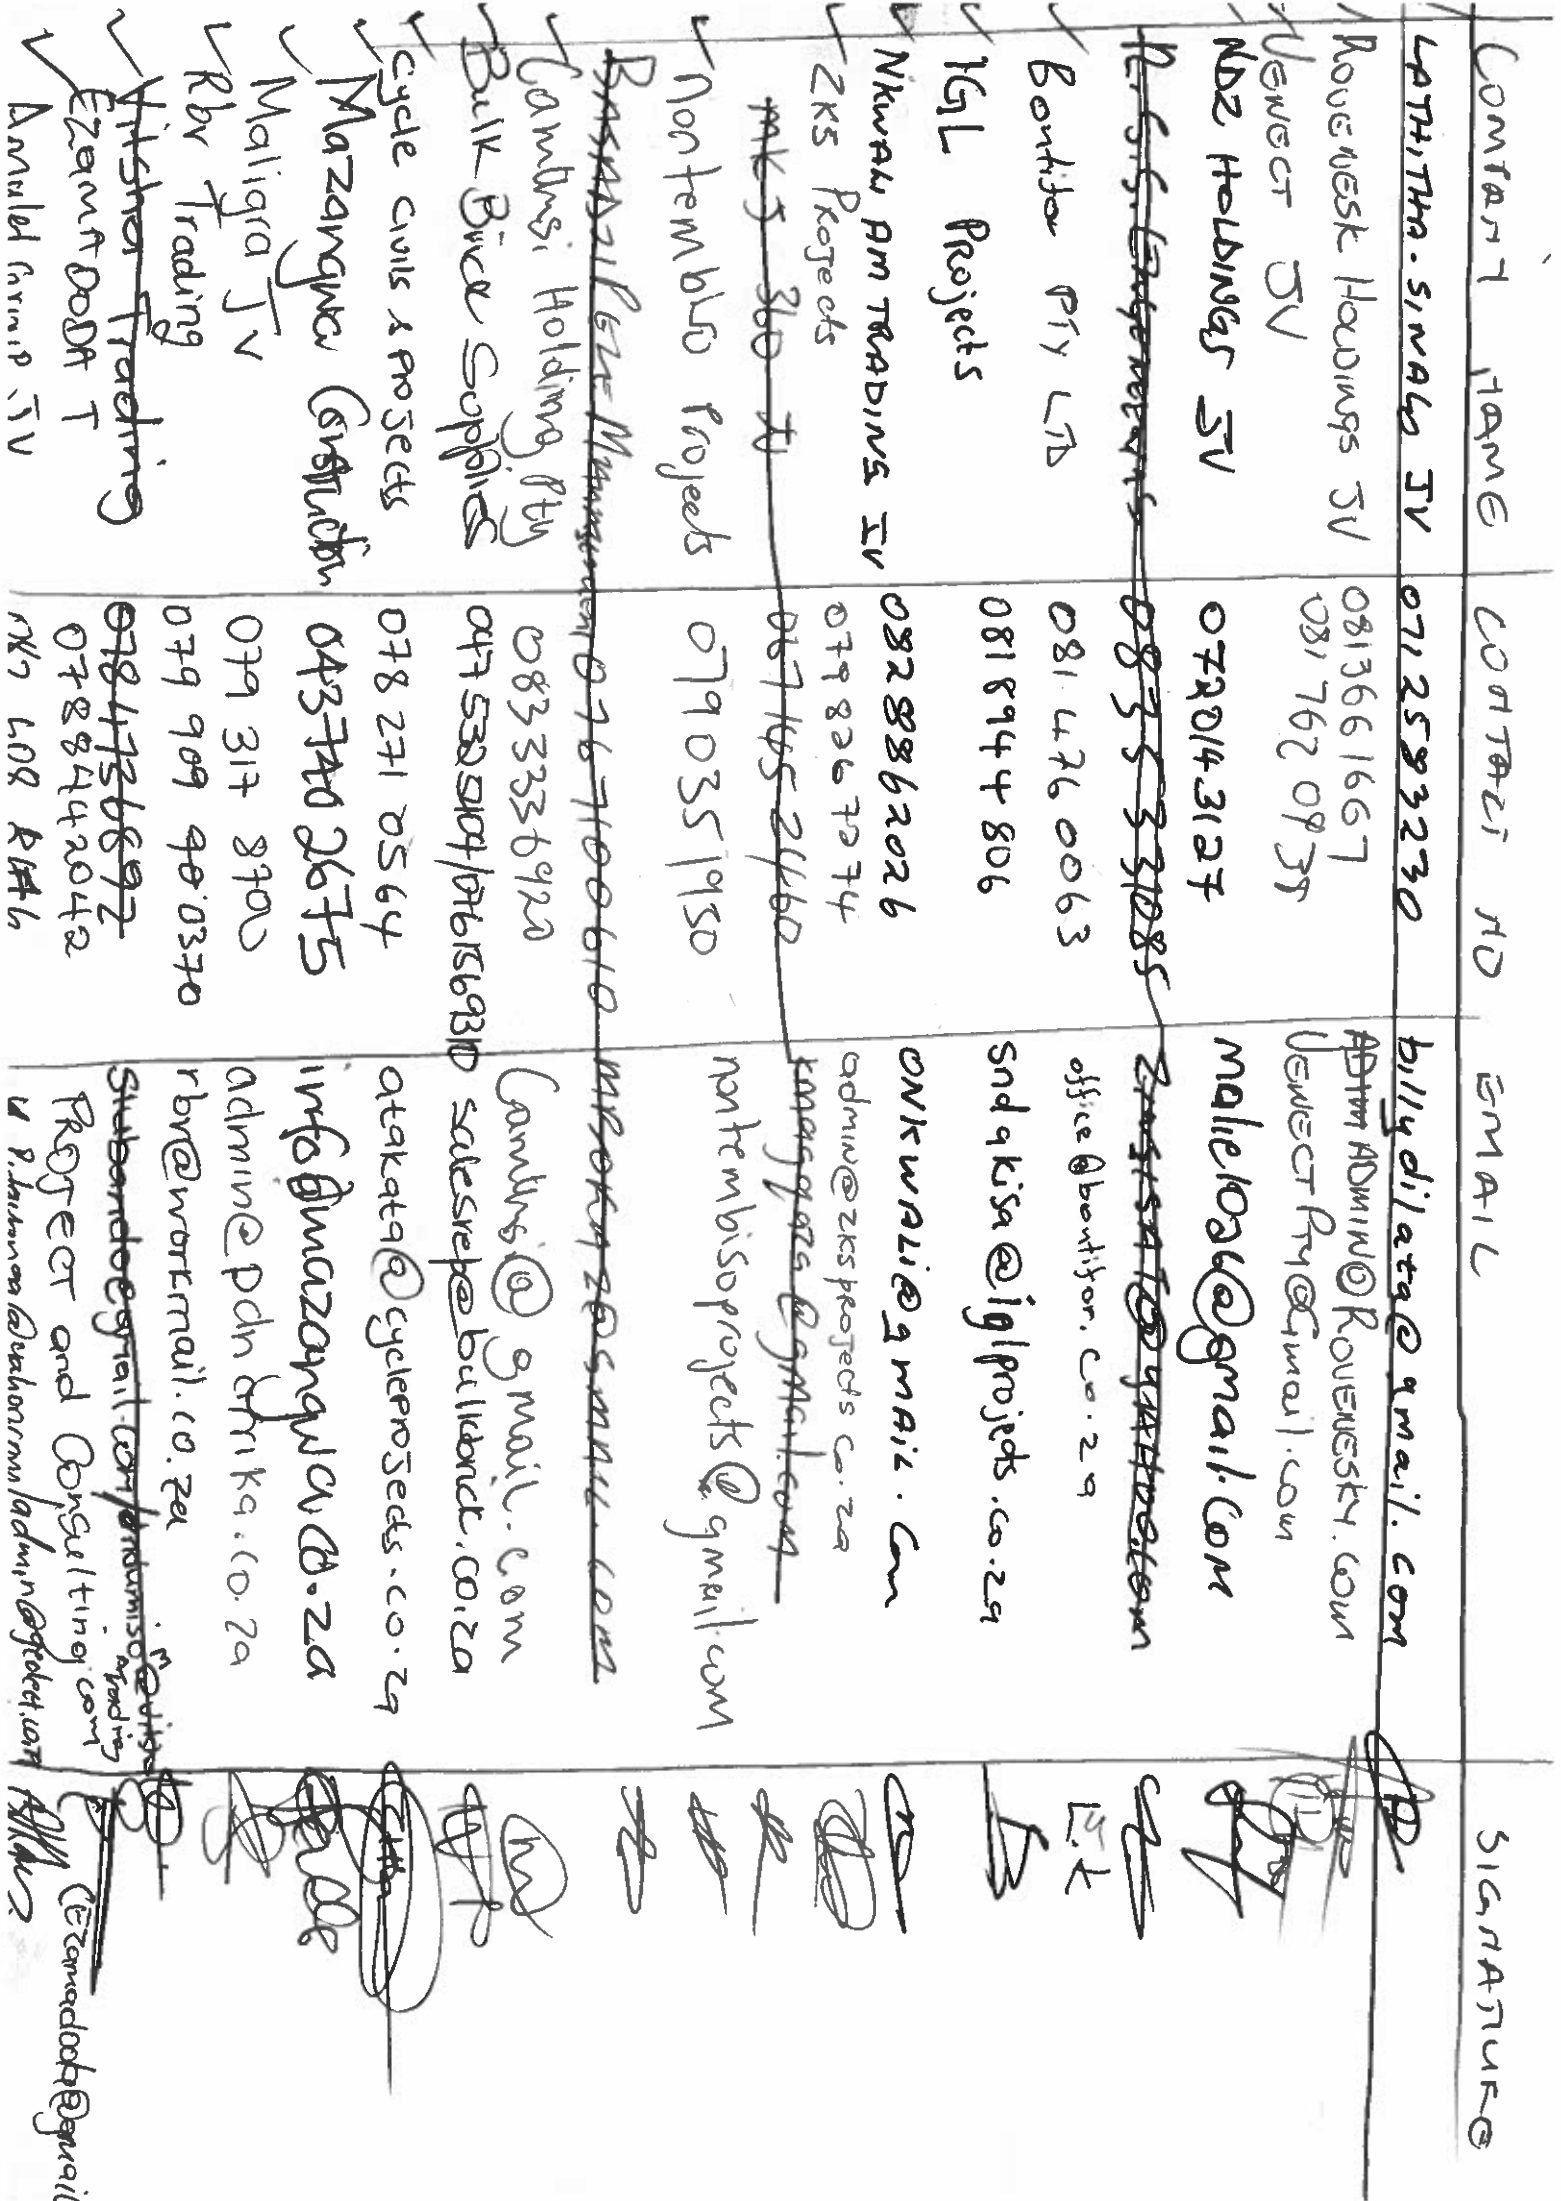 COMPANY NAME CONTACT NO EMAIL SIGNATURE
LATHITHA. SINALO JV 0712583230 billydilata@gmail.com
ROVENESK HOLDINGS JV 0813661667 ADMIN@ROVENESKY.COM
VENECT JV 081 762 0939 VENECTPTY@Gmail.com
NDZ HOLDINGS JV 0720143127 malie1026@gmail.com
0835331085
Bontifor PTY LTD 081 476 0063 office@bontifor.co.za
IGL Projects 081 894 4806 sndqkisa@iglprojects.co.za
NIKWALI AM TRADING JV 0828862026 ONIKWALI@gMAIL.com
ZKS Projects 0798267274 admin@zksprojects.co.za
MK5 360 JV 067 165 2460 kmaggaza@gmail.com
Nontembiso Projects 0790351950 nontembisoprojects@gmail.com
0767100610
Camthsi Holding Pty 0833336920 Camthsi@gmail.com
Bulk Brick Supplies 0475325104/0761569310 salesrep@bulkbrick.co.za
Cycle Civils & Projects 078 271 0564 atakata@cycleprojects.co.za
Mazangwa Construction 0437402675 info@mazangwa.co.za
Maligra JV 079 317 8700 admin@pdnafrika.co.za
Rbr Trading 079 909 0370 rbr@workmail.co.za
Vitsha Trading 0784736892
EZAMADODA T 0788442042 PROJECT and Consulting.com (Ezamadoda@gmail